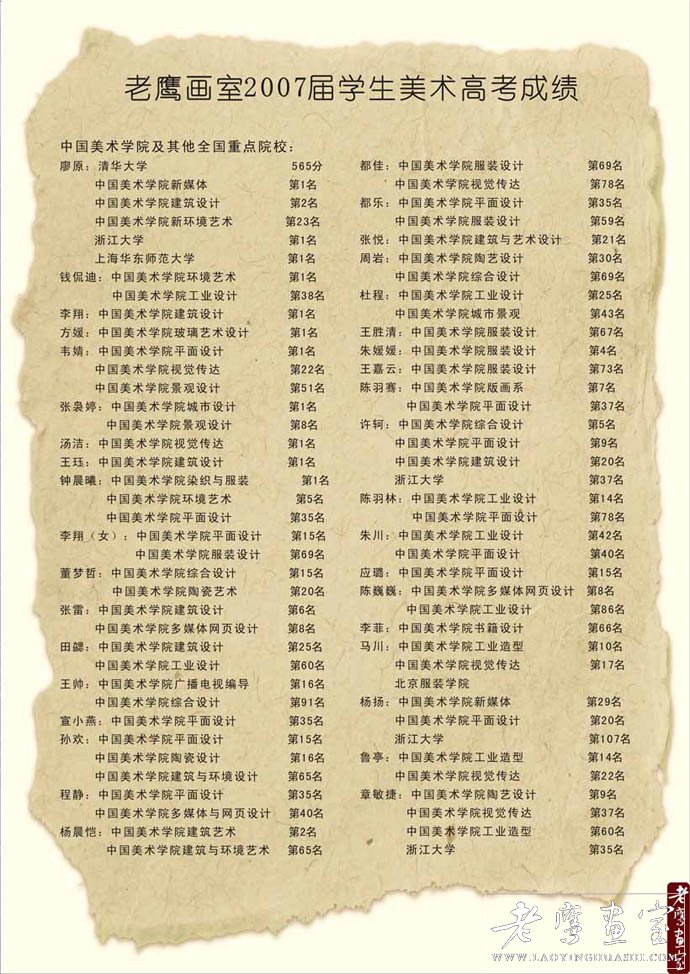 老鹰画室2007届学生美术高考成绩
中国美术学院及其他全国重点院校：
廖原：清华大学 565分
中国美术学院新媒体 第1名
中国美术学院建筑设计 第2名
中国美术学院新环境艺术 第23名
浙江大学 第1名
上海华东师范大学 第1名
钱侃迪：中国美术学院环境艺术 第1名
中国美术学院工业设计 第38名
李翔：中国美术学院建筑设计 第1名
方媛：中国美术学院玻璃艺术设计 第1名
韦婧：中国美术学院平面设计 第1名
中国美术学院视觉传达 第22名
中国美术学院景观设计 第51名
张袅婷：中国美术学院城市设计 第1名
中国美术学院景观设计 第8名
汤洁：中国美术学院视觉传达 第1名
王珏：中国美术学院建筑设计 第1名
钟晨曦：中国美术学院染织与服装 第1名
中国美术学院环境艺术 第5名
中国美术学院平面设计 第35名
李翔（女）：中国美术学院平面设计 第15名
中国美术学院服装设计 第69名
董梦哲：中国美术学院综合设计 第15名
中国美术学院陶瓷艺术 第20名
张雷：中国美术学院建筑设计 第6名
中国美术学院多媒体网页设计 第8名
田勰：中国美术学院建筑设计 第25名
中国美术学院工业设计 第60名
王帅：中国美术学院广播电视编导 第16名
中国美术学院综合设计 第91名
宣小燕：中国美术学院平面设计 第35名
孙欢：中国美术学院平面设计 第15名
中国美术学院陶瓷设计 第16名
中国美术学院建筑与环境设计 第65名
程静：中国美术学院平面设计 第35名
中国美术学院多媒体与网页设计 第40名
杨晨恺：中国美术学院建筑艺术 第2名
中国美术学院建筑与环境艺术 第65名
都佳：中国美术学院服装设计 第69名
中国美术学院视觉传达 第78名
都乐：中国美术学院平面设计 第35名
中国美术学院服装设计 第59名
张悦：中国美术学院建筑与艺术设计 第21名
周岩：中国美术学院陶艺设计 第30名
中国美术学院综合设计 第69名
杜程：中国美术学院工业设计 第25名
中国美术学院城市景观 第43名
王胜清：中国美术学院服装设计 第67名
朱媛媛：中国美术学院服装设计 第4名
王嘉云：中国美术学院服装设计 第73名
陈羽骞：中国美术学院版画系 第7名
中国美术学院平面设计 第37名
许轲：中国美术学院综合设计 第5名
中国美术学院平面设计 第9名
中国美术学院建筑设计 第20名
浙江大学 第37名
陈羽林：中国美术学院工业设计 第14名
中国美术学院平面设计 第78名
朱川：中国美术学院工业设计 第42名
中国美术学院平面设计 第40名
应璐：中国美术学院平面设计 第15名
陈巍巍：中国美术学院多媒体网页设计 第8名
中国美术学院工业设计 第86名
李菲：中国美术学院书籍设计 第66名
马川：中国美术学院工业造型 第10名
中国美术学院视觉传达 第17名
北京服装学院
杨扬：中国美术学院新媒体 第29名
中国美术学院平面设计 第20名
浙江大学 第107名
鲁亭：中国美术学院工业造型 第14名
中国美术学院视觉传达 第22名
章敏捷：中国美术学院陶艺设计 第9名
中国美术学院视觉传达 第37名
中国美术学院工业造型 第60名
浙江大学 第35名
老鹰画室
WWW.LAOYINGHUASHI.COM
老鹰画室